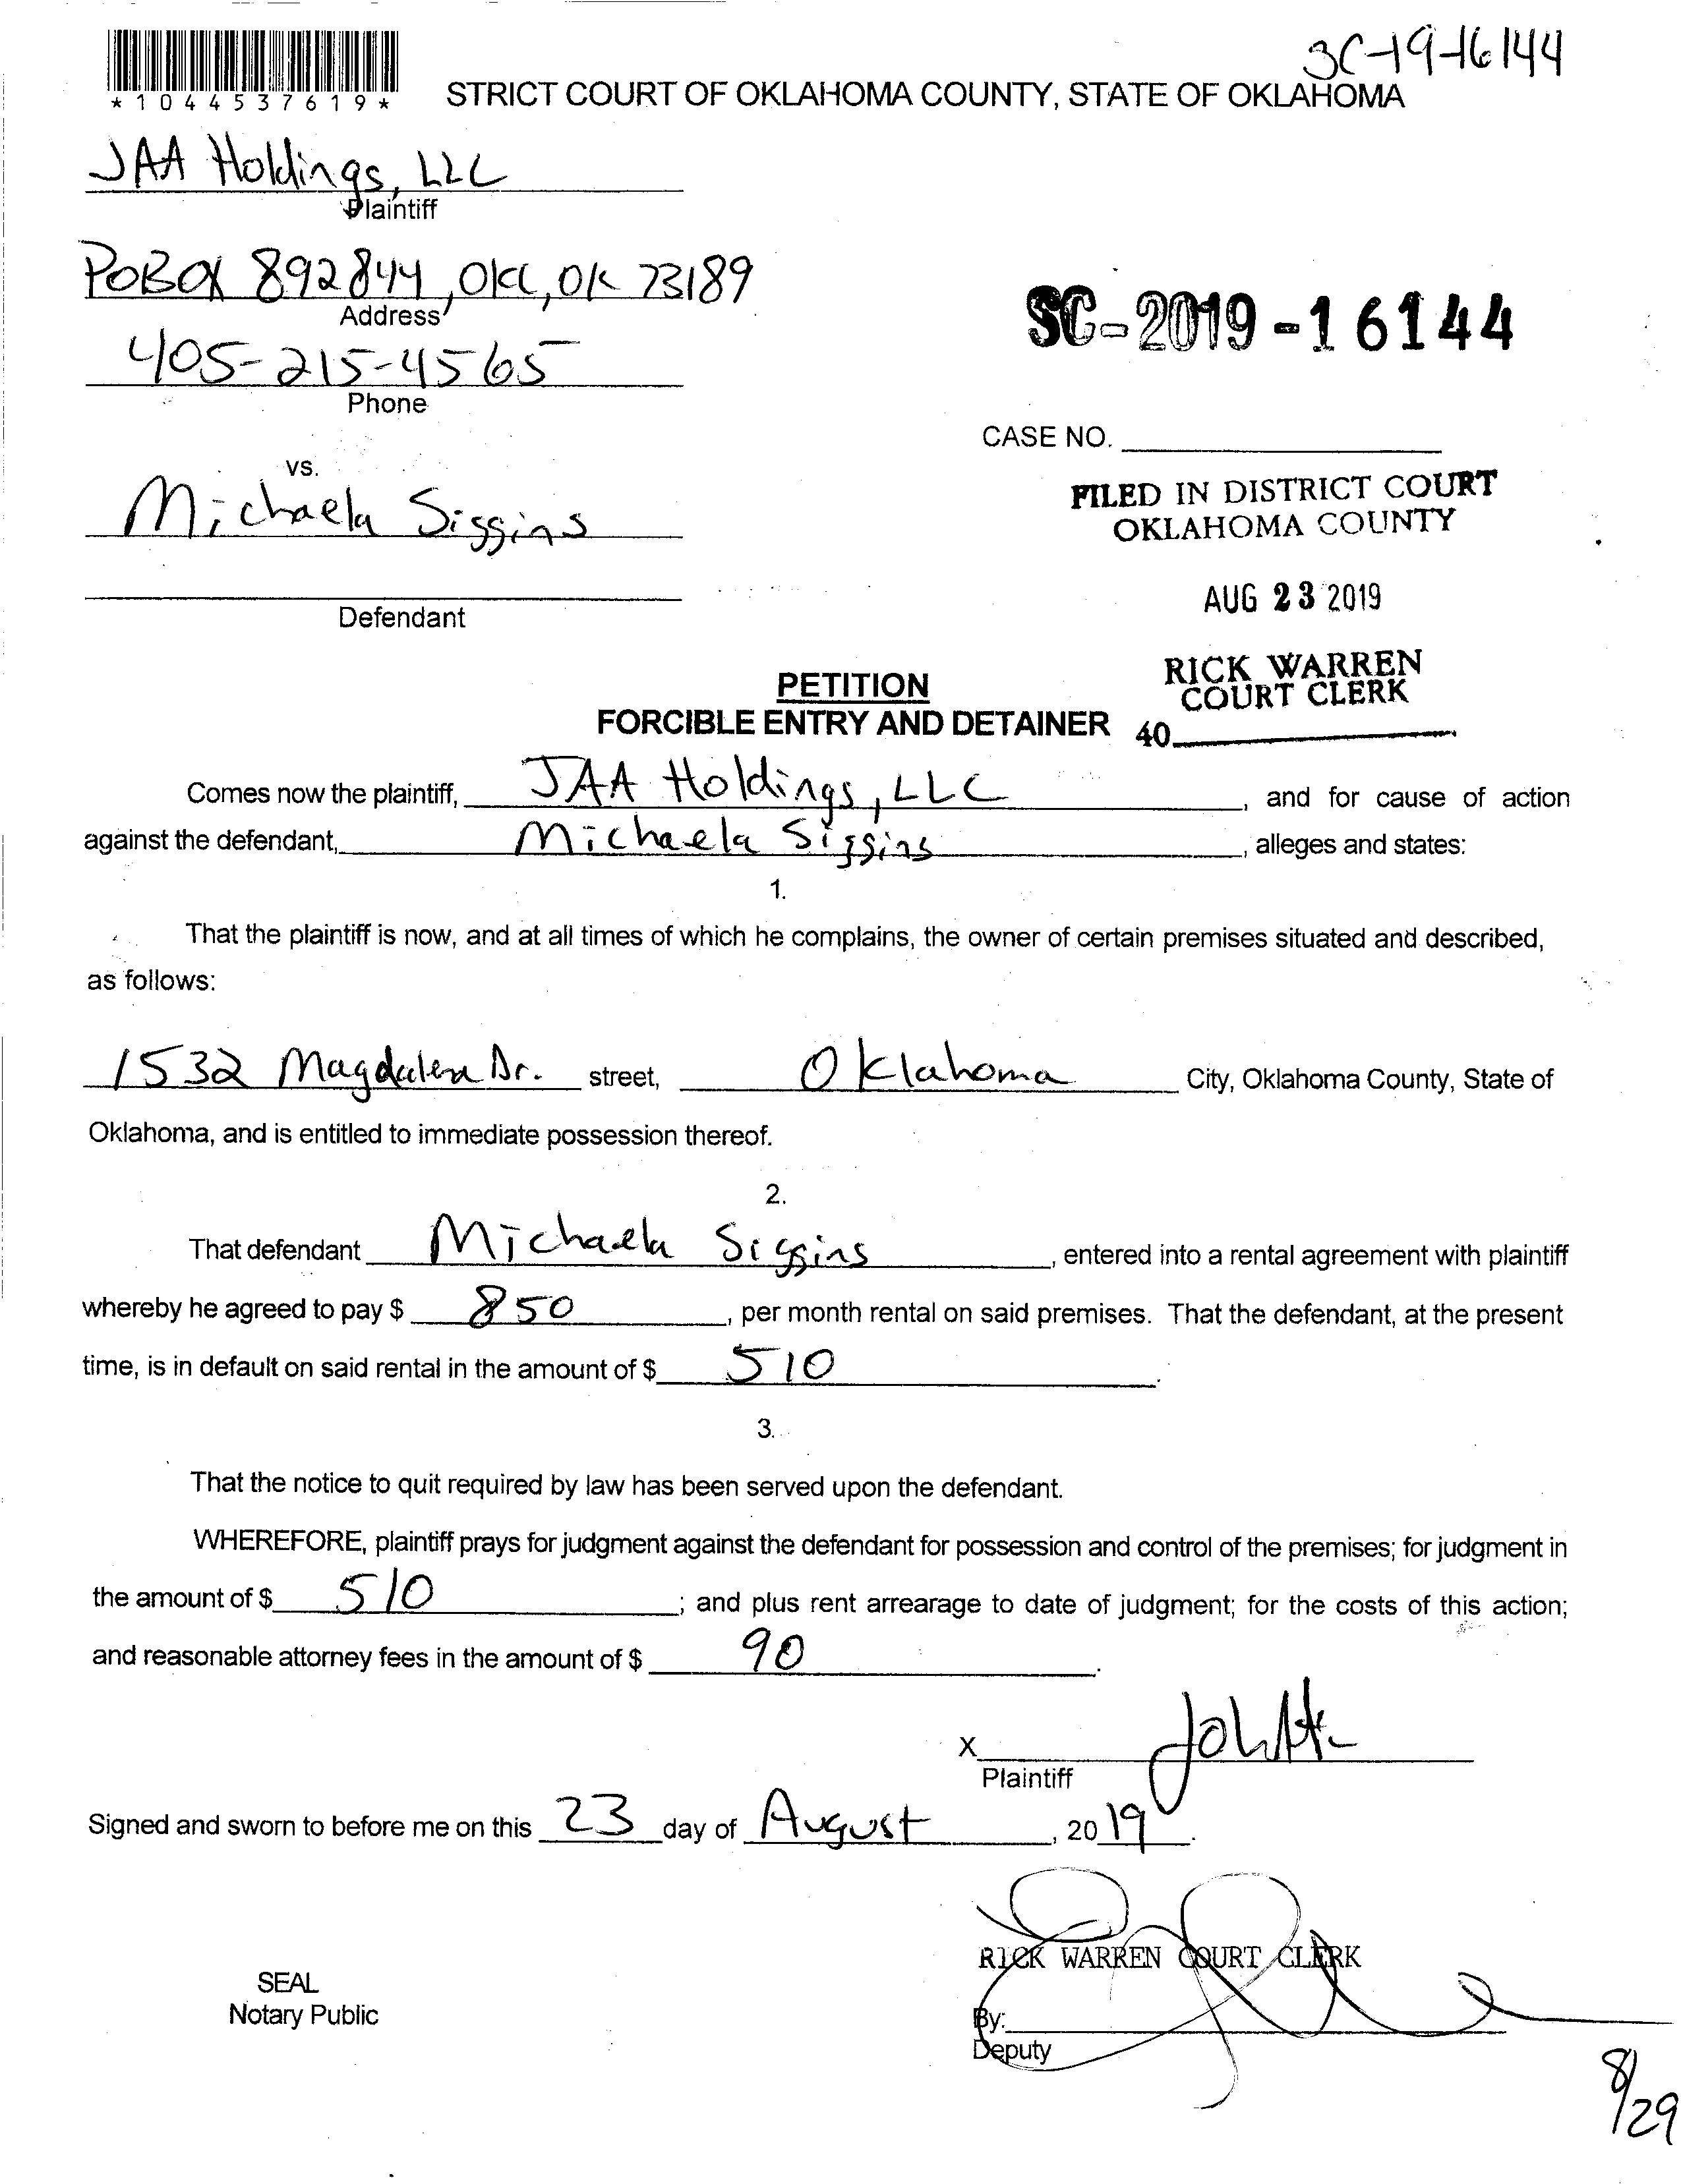 3C-19-16144
*1044537619*
STRICT COURT OF OKLAHOMA COUNTY, STATE OF OKLAHOMA
JAA Holdings, LLC
Plaintiff
PO BOX 892844, OKC, OK 73189
Address
405-215-4565
Phone
SC-2019-16144
CASE NO.
vs.
Michaela Siggins
FILED IN DISTRICT COURT
OKLAHOMA COUNTY
AUG 23 2019
Defendant
RICK WARREN
COURT CLERK
40
PETITION
FORCIBLE ENTRY AND DETAINER
Comes now the plaintiff, JAA Holdings, LLC, and for cause of action
against the defendant, Michaela Siggins, alleges and states:
1.
That the plaintiff is now, and at all times of which he complains, the owner of certain premises situated and described,
as follows:
1532 Magdalena Dr. street, Oklahoma City, Oklahoma County, State of
Oklahoma, and is entitled to immediate possession thereof.
2.
That defendant Michaela Siggins, entered into a rental agreement with plaintiff
whereby he agreed to pay $ 850, per month rental on said premises. That the defendant, at the present
time, is in default on said rental in the amount of $ 510.
3.
That the notice to quit required by law has been served upon the defendant.
WHEREFORE, plaintiff prays for judgment against the defendant for possession and control of the premises; for judgment in
the amount of $ 510; and plus rent arrearage to date of judgment; for the costs of this action;
and reasonable attorney fees in the amount of $ 90.
X
Plaintiff
Signed and sworn to before me on this 23 day of August, 2019.
RICK WARREN COURT CLERK
SEAL
Notary Public
By:
Deputy
8/29